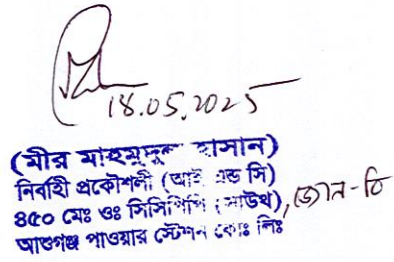 18.05.2025
(মীর মাহমুদুল হাসান)
নির্বাহী প্রকৌশলী (আই এন্ড সি)
৪৫০ মেঃ ওঃ সিসিপিপি (সাউথ), জোন-বি
আশুগঞ্জ পাওয়ার স্টেশন কোঃ লিঃ